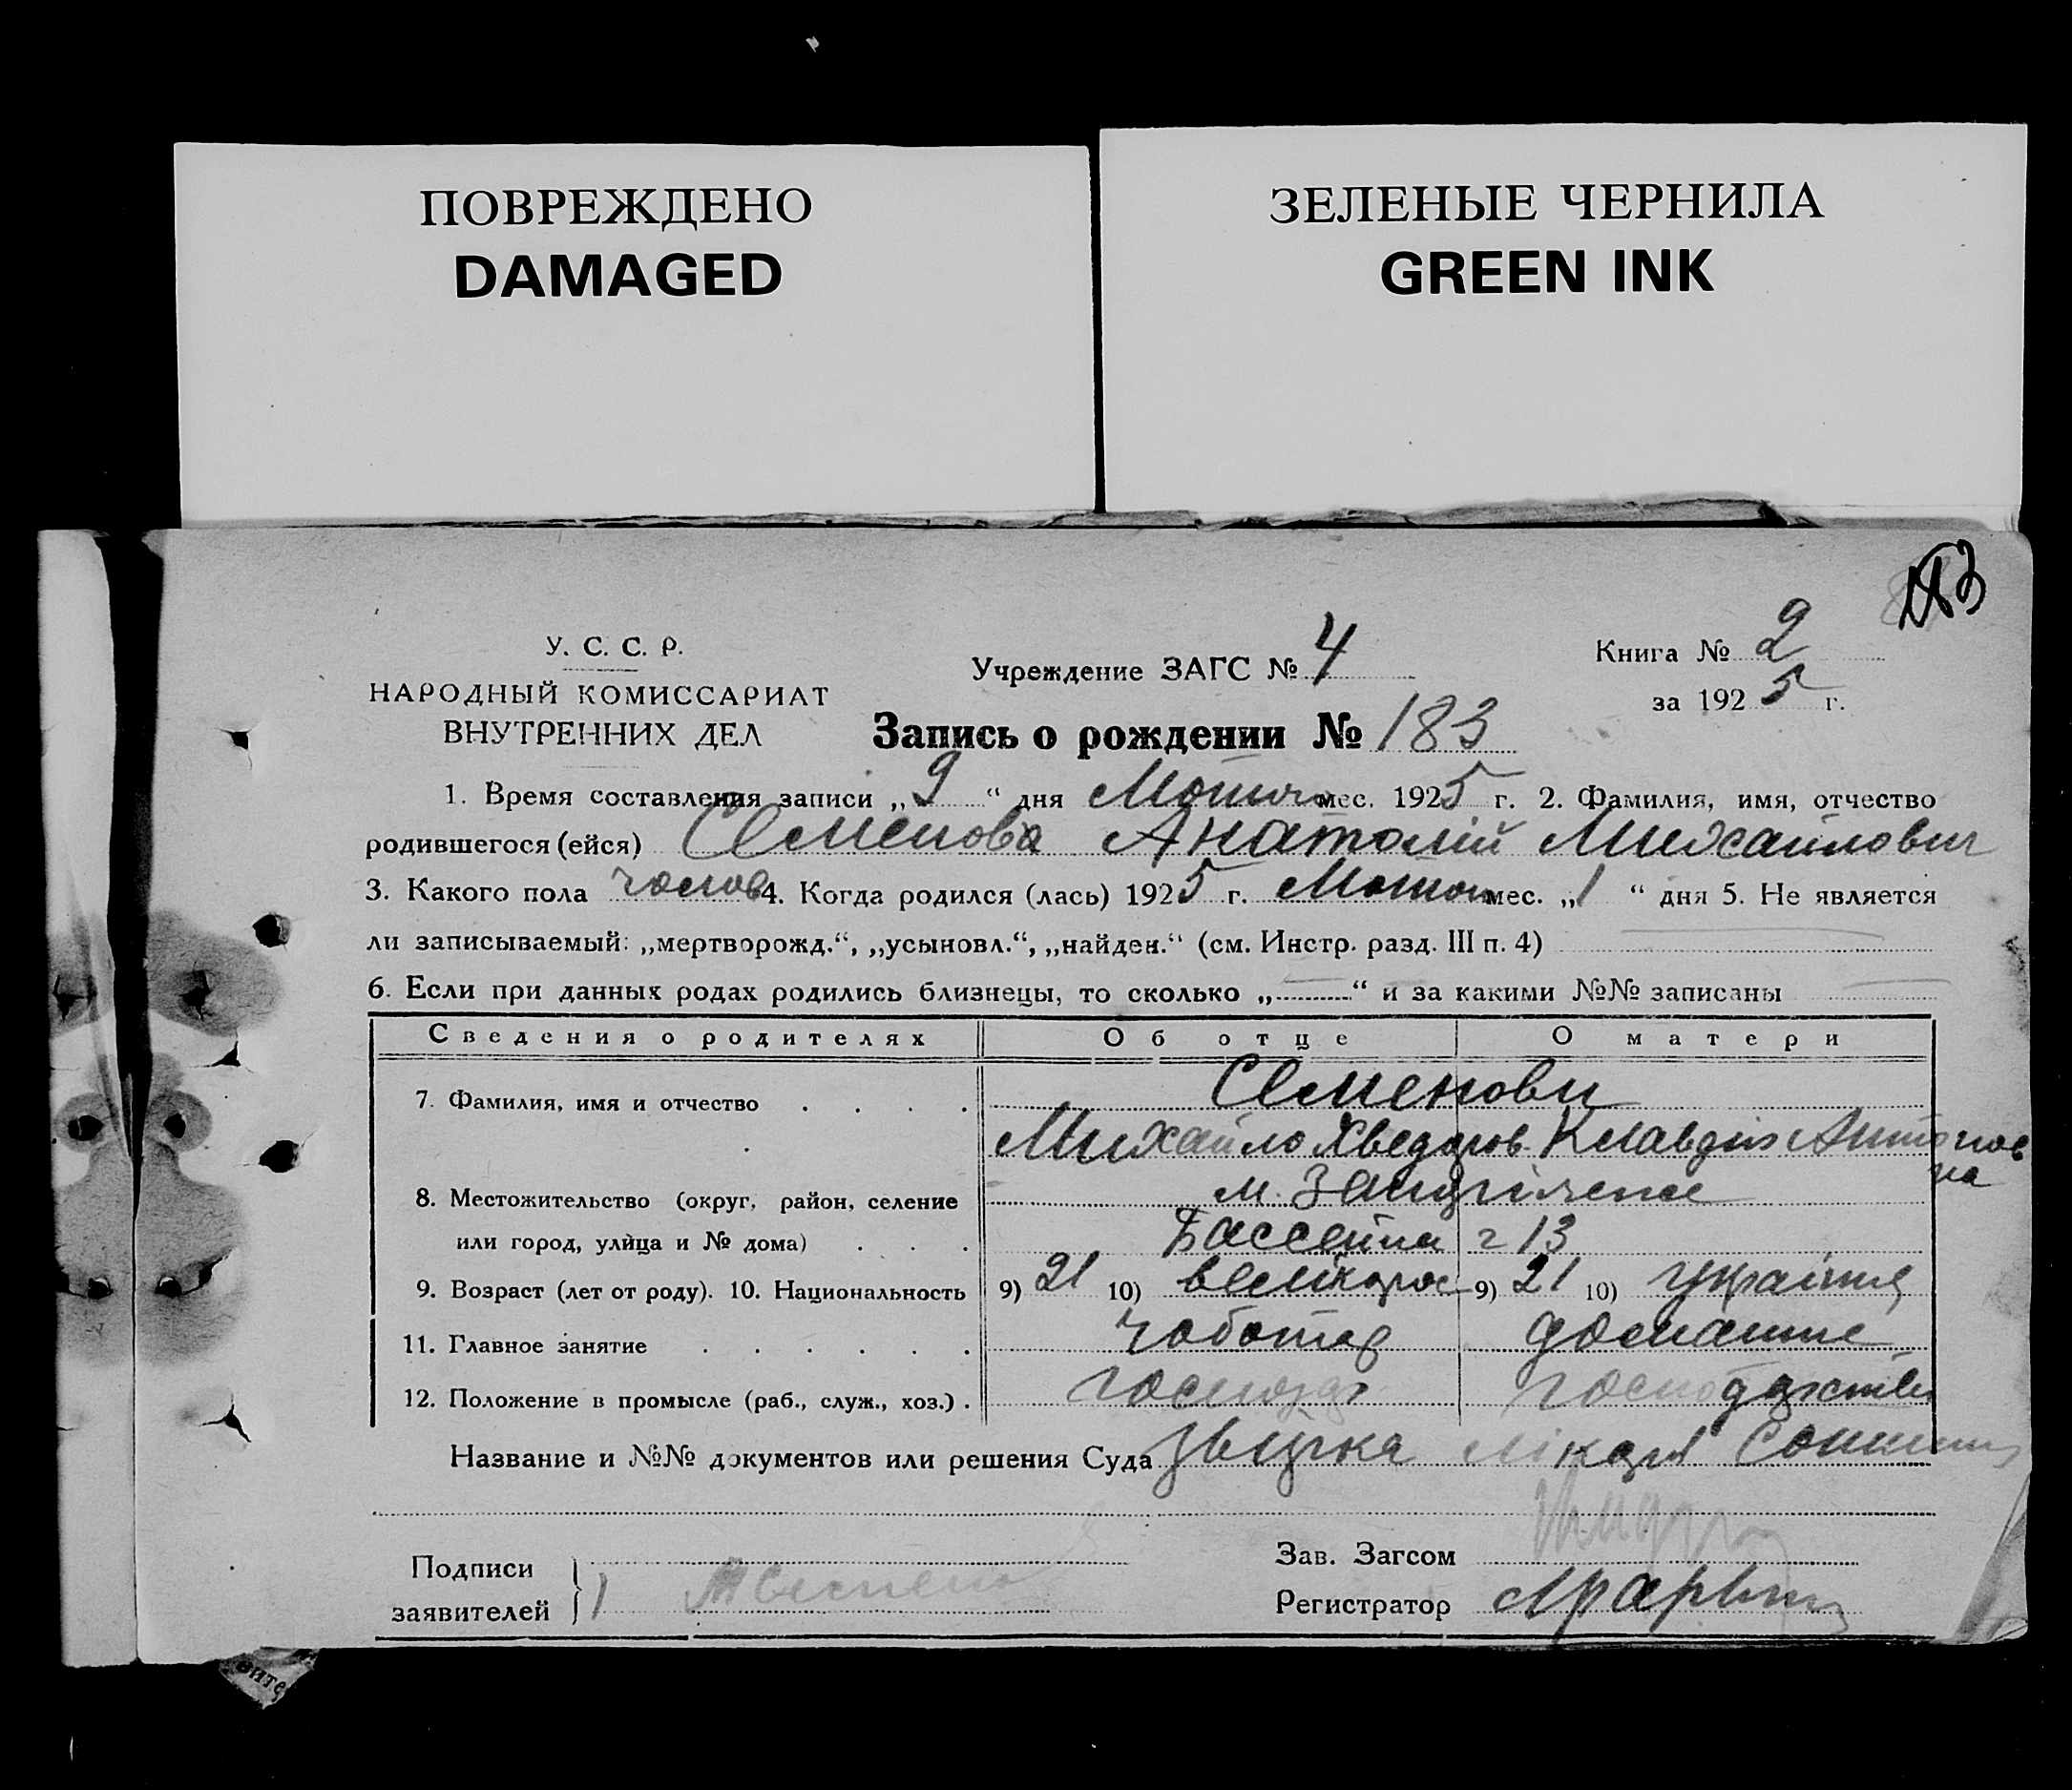 ПОВРЕЖДЕНО
DAMAGED
ЗЕЛЕНЫЕ ЧЕРНИЛА
GREEN INK
У. С. С. Р.
НАРОДНЫЙ КОМИССАРИАТ
ВНУТРЕННИХ ДЕЛ
Учреждение ЗАГС № 4
Книга № 2
за 1925 г.
Запись о рождении № 183
1. Время составления записи „9“ дня Лютого мес. 1925 г. 2. Фамилия, имя, отчество
родившегося (ейся) Семенова Анатолій Михайлович
3. Какого пола чолов 4. Когда родился (лась) 1925 г. Лютого мес. „1“ дня 5. Не является
ли записываемый: „мертворожд.“, „усыновл.“, „найден.“ (см. Инстр. разд. III п. 4)
6. Если при данных родах родились близнецы, то сколько „ “ и за какими №№ записаны
Сведения о родителях Об отце О матери
7. Фамилия, имя и отчество Семенови
Михайло Хведоров. Клавдія Антонов
на
8. Местожительство (округ, район, селение м.
или город, улица и № дома) Бассейна 13
9. Возраст (лет от роду). 10. Национальность 9) 21 10) великорос 9) 21 10) україн
11. Главное занятие чоботар домашнє
12. Положение в промысле (раб., служ., хоз.) господар господарство
Название и №№ документов или решения Суда лікаря
Подписи
заявителей
Зав. Загсом
Регистратор